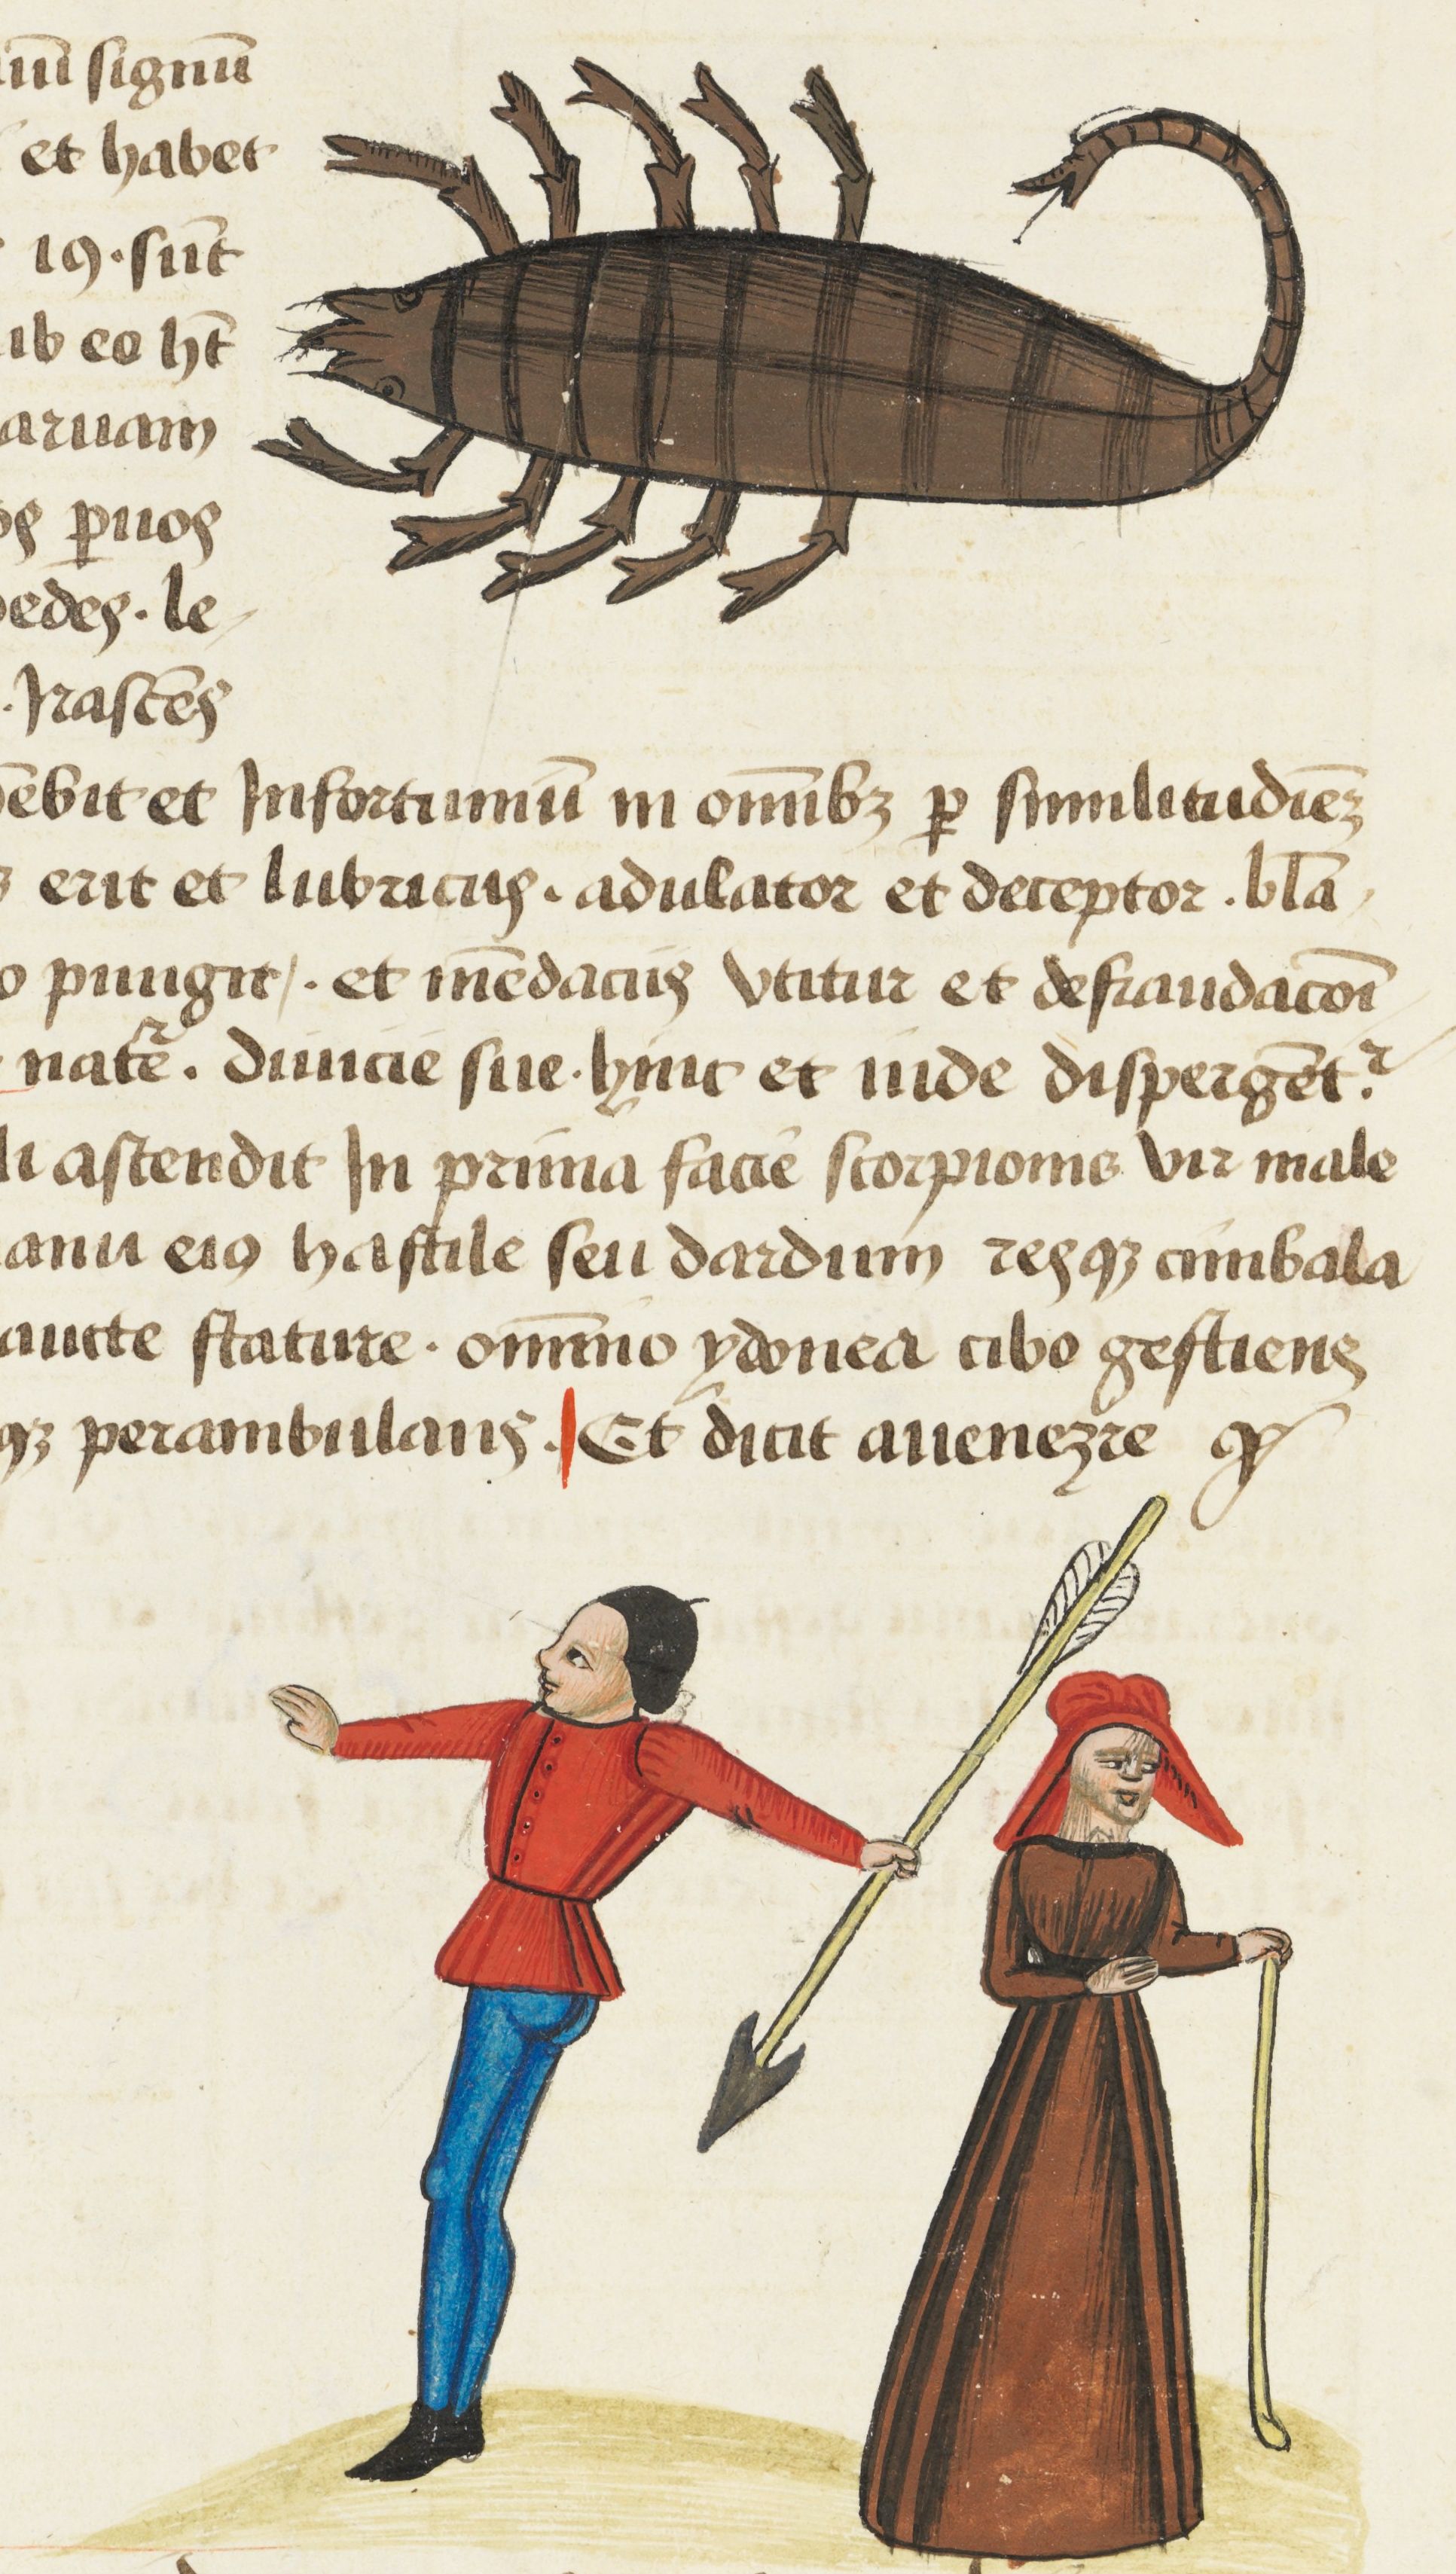 signū
et habet
19 · sūt
eo ht̄
aruam
ꝑuos
pedes · le
· Irascēs
et Infortuniū in omībꝫ ꝑ similitudīeꝫ
erit et lubricus · adulator et deceptor · blā
pungit / · et mēdaciis vtitur et defraudacōi
natͬe · diuicie sue · hinc et inde dispergēt͛
astendit In prima facie scorpionis vir male
anu eiꝰ hastile seu dardum resqꝫ cimbala
stature · omīno ydonea cibo gestiens
qꝫ perambulans · Et dicit auenezre ꝙ